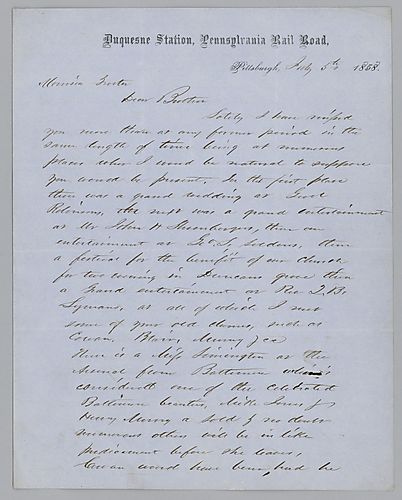 Duquesne Station, Pennsylvania Rail Road,
Pittsburgh, July 5th 1868.
Dear Brother
Lately I have missed
you more than at any former period in the
same length of time being at numerous
places when I would be natural to suppose
you would be present. In the first place
there was a grand wedding at
Robinsons, the next was a grand entertainment
at Mr John H Shoenbergers, then an
entertainment at Geo. S. then
a festival for the benefit of our Church
for two evening in grove then
a Grand entertainment at Rev T. B.
Lymans, at all of which I met
some of your old such as
Cowan, Blair, Murry &ca
There is a Miss at the
Arsenal from Baltimore who is
considered one of the celebrated
Baltimore beauties, Jones &
Henry Murry a sold & no doubt
numerous others will be in like
predicament before she leaves,
Cowan would have been, had he